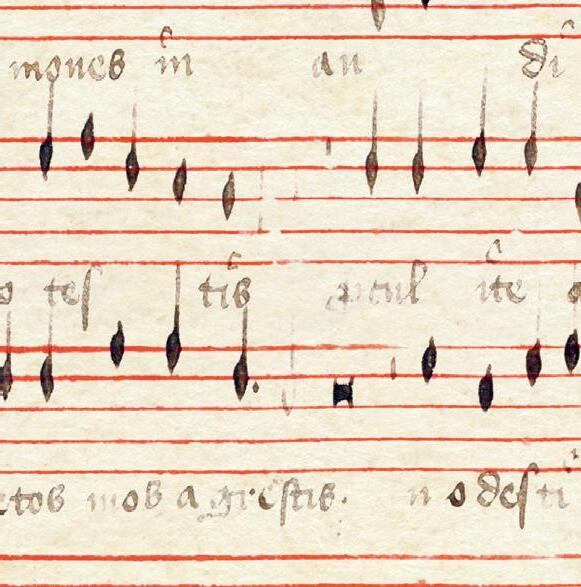 mones in au di
o tes tis pcul ite
etos mos agrestis. n o des ti